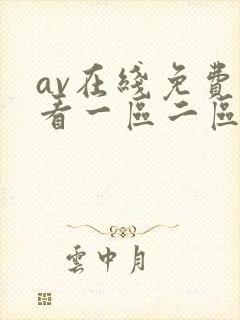 av在綫免費
看一區二區
雲中月